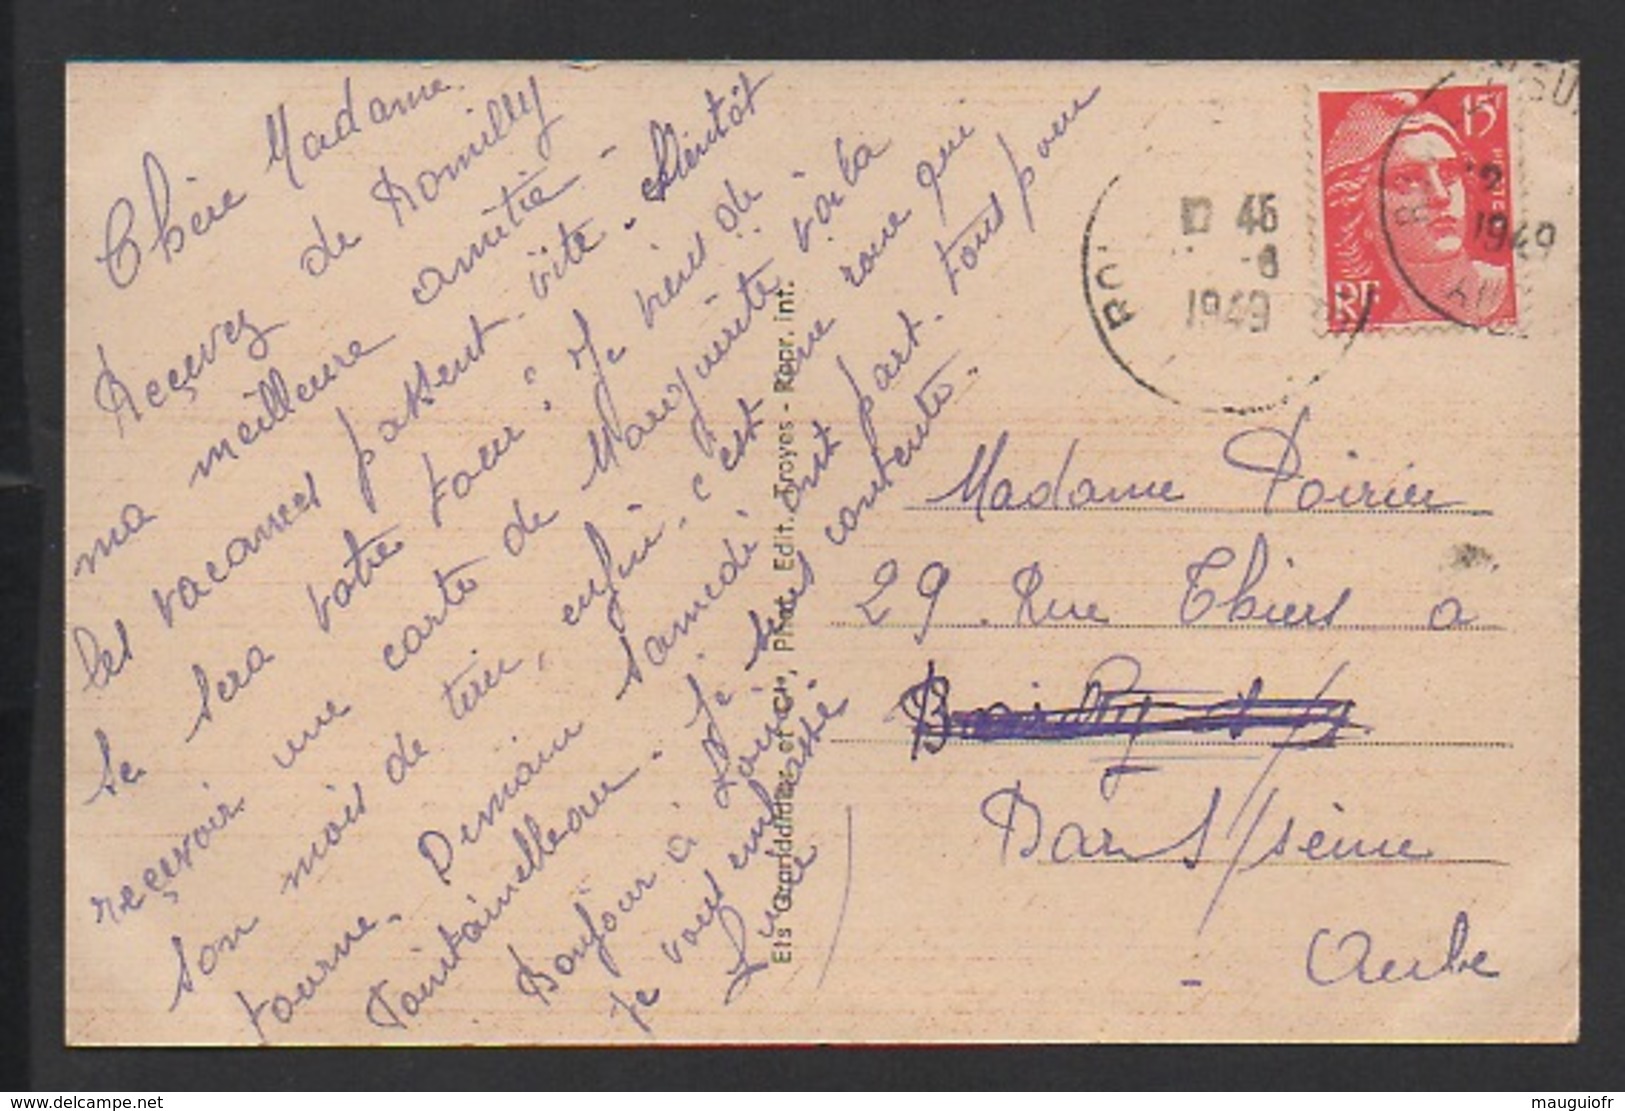 Chère Madame.
Recevez de Romilly
ma meilleure amitié -
Les vacances passent vite. Bientôt
se sera votre tour ! Je viens de
recevoir une carte de Marguerite voila
son mois de tiré, enfin, c'est une roue qui
tourne. Demain samedi ont part. tous pour
Fontainebleau. Je suis contente.
Bonjour à
Je vous embrasse
Ets Granddidier et Cie, Phot. Edit. Troyes - Repr. int.
15F
RF
RO
12 45
-8
1949
1949
Madame Poirier
29. Rue Thiers a
Bar S/seine
- Aube
www.delcampe.net
mauguiofr